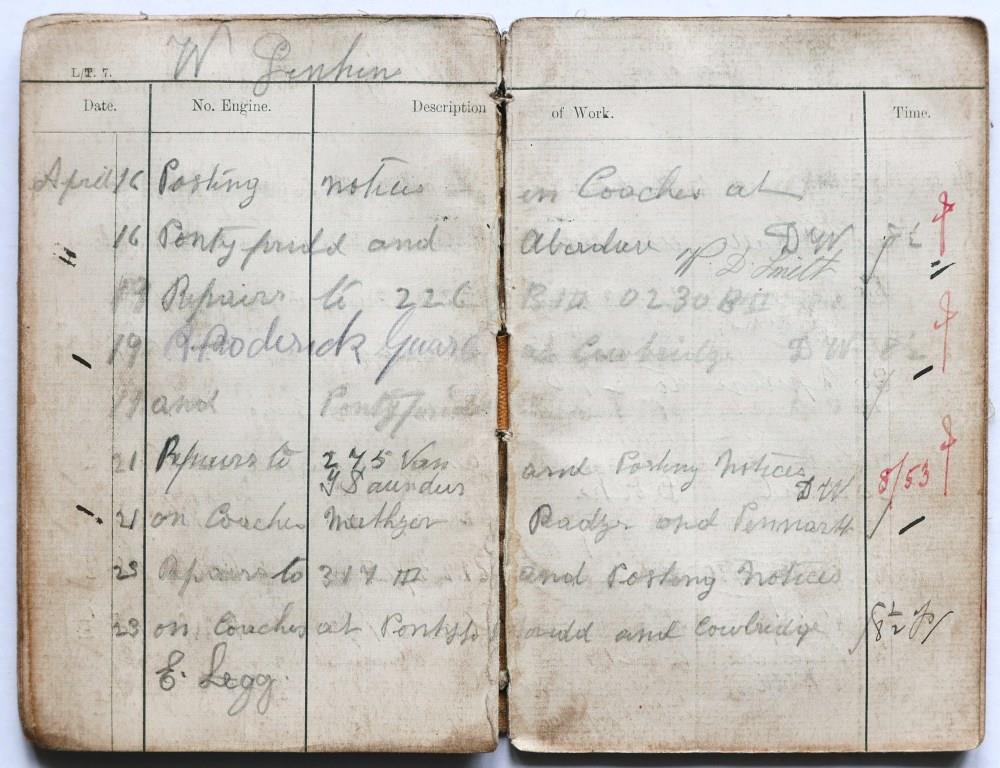 W Jenkin
L/T. 7.
Date. No. Engine. Description of Work. Time.
April 16 Posting notices in Coaches at
16 Pontypridd and Aberdare D W 8½
W. D. Smith
19 Repairs to 226 B III 0230 B II
19 Roderick Guard at Cowbridge D W 8½
19 and Pontypridd
21 Repairs to 275 Van and Posting Notices 8/53
J Saunders D W
21 on Coaches Merthyr Radyr and Pennarth
23 Repairs to 317 III and Posting Notices
23 on Coaches at Pontypridd and Cowbridge 8½
E. Legg